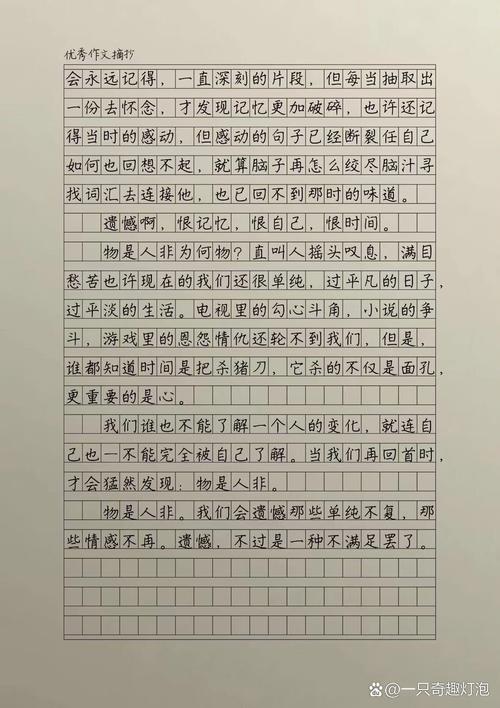 优秀作文摘抄
会永远记得，一直深刻的片段，但每当抽取出
一份去怀念，才发现记忆更加破碎，也许还记
得当时的感动，但感动的句子已经断裂任自己
如何也回想不起，就算脑子再怎么绞尽脑汁寻
找词汇去连接他，也已回不到那时的味道。
遗憾啊，恨记忆，恨自己，恨时间。
物是人非为何物？直叫人摇头叹息，满目
愁苦也许现在的我们还很单纯，过平凡的日子，
过平淡的生活。电视里的勾心斗角，小说的争
斗，游戏里的恩怨情仇还轮不到我们，但是，
谁都知道时间是把杀猪刀，它杀的不仅是面孔，
更重要的是心。
我们谁也不能了解一个人的变化，就连自
己也一不能完全被自己了解。当我们再回首时，
才会猛然发现：物是人非。
物是人非。我们会遗憾那些单纯不复，那
些情感不再。遗憾，不过是一种不满足罢了。
一只奇趣灯泡